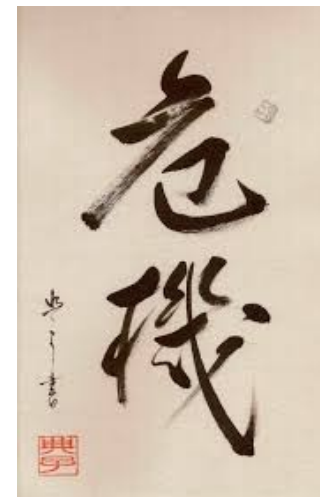 危機
典子書
典子